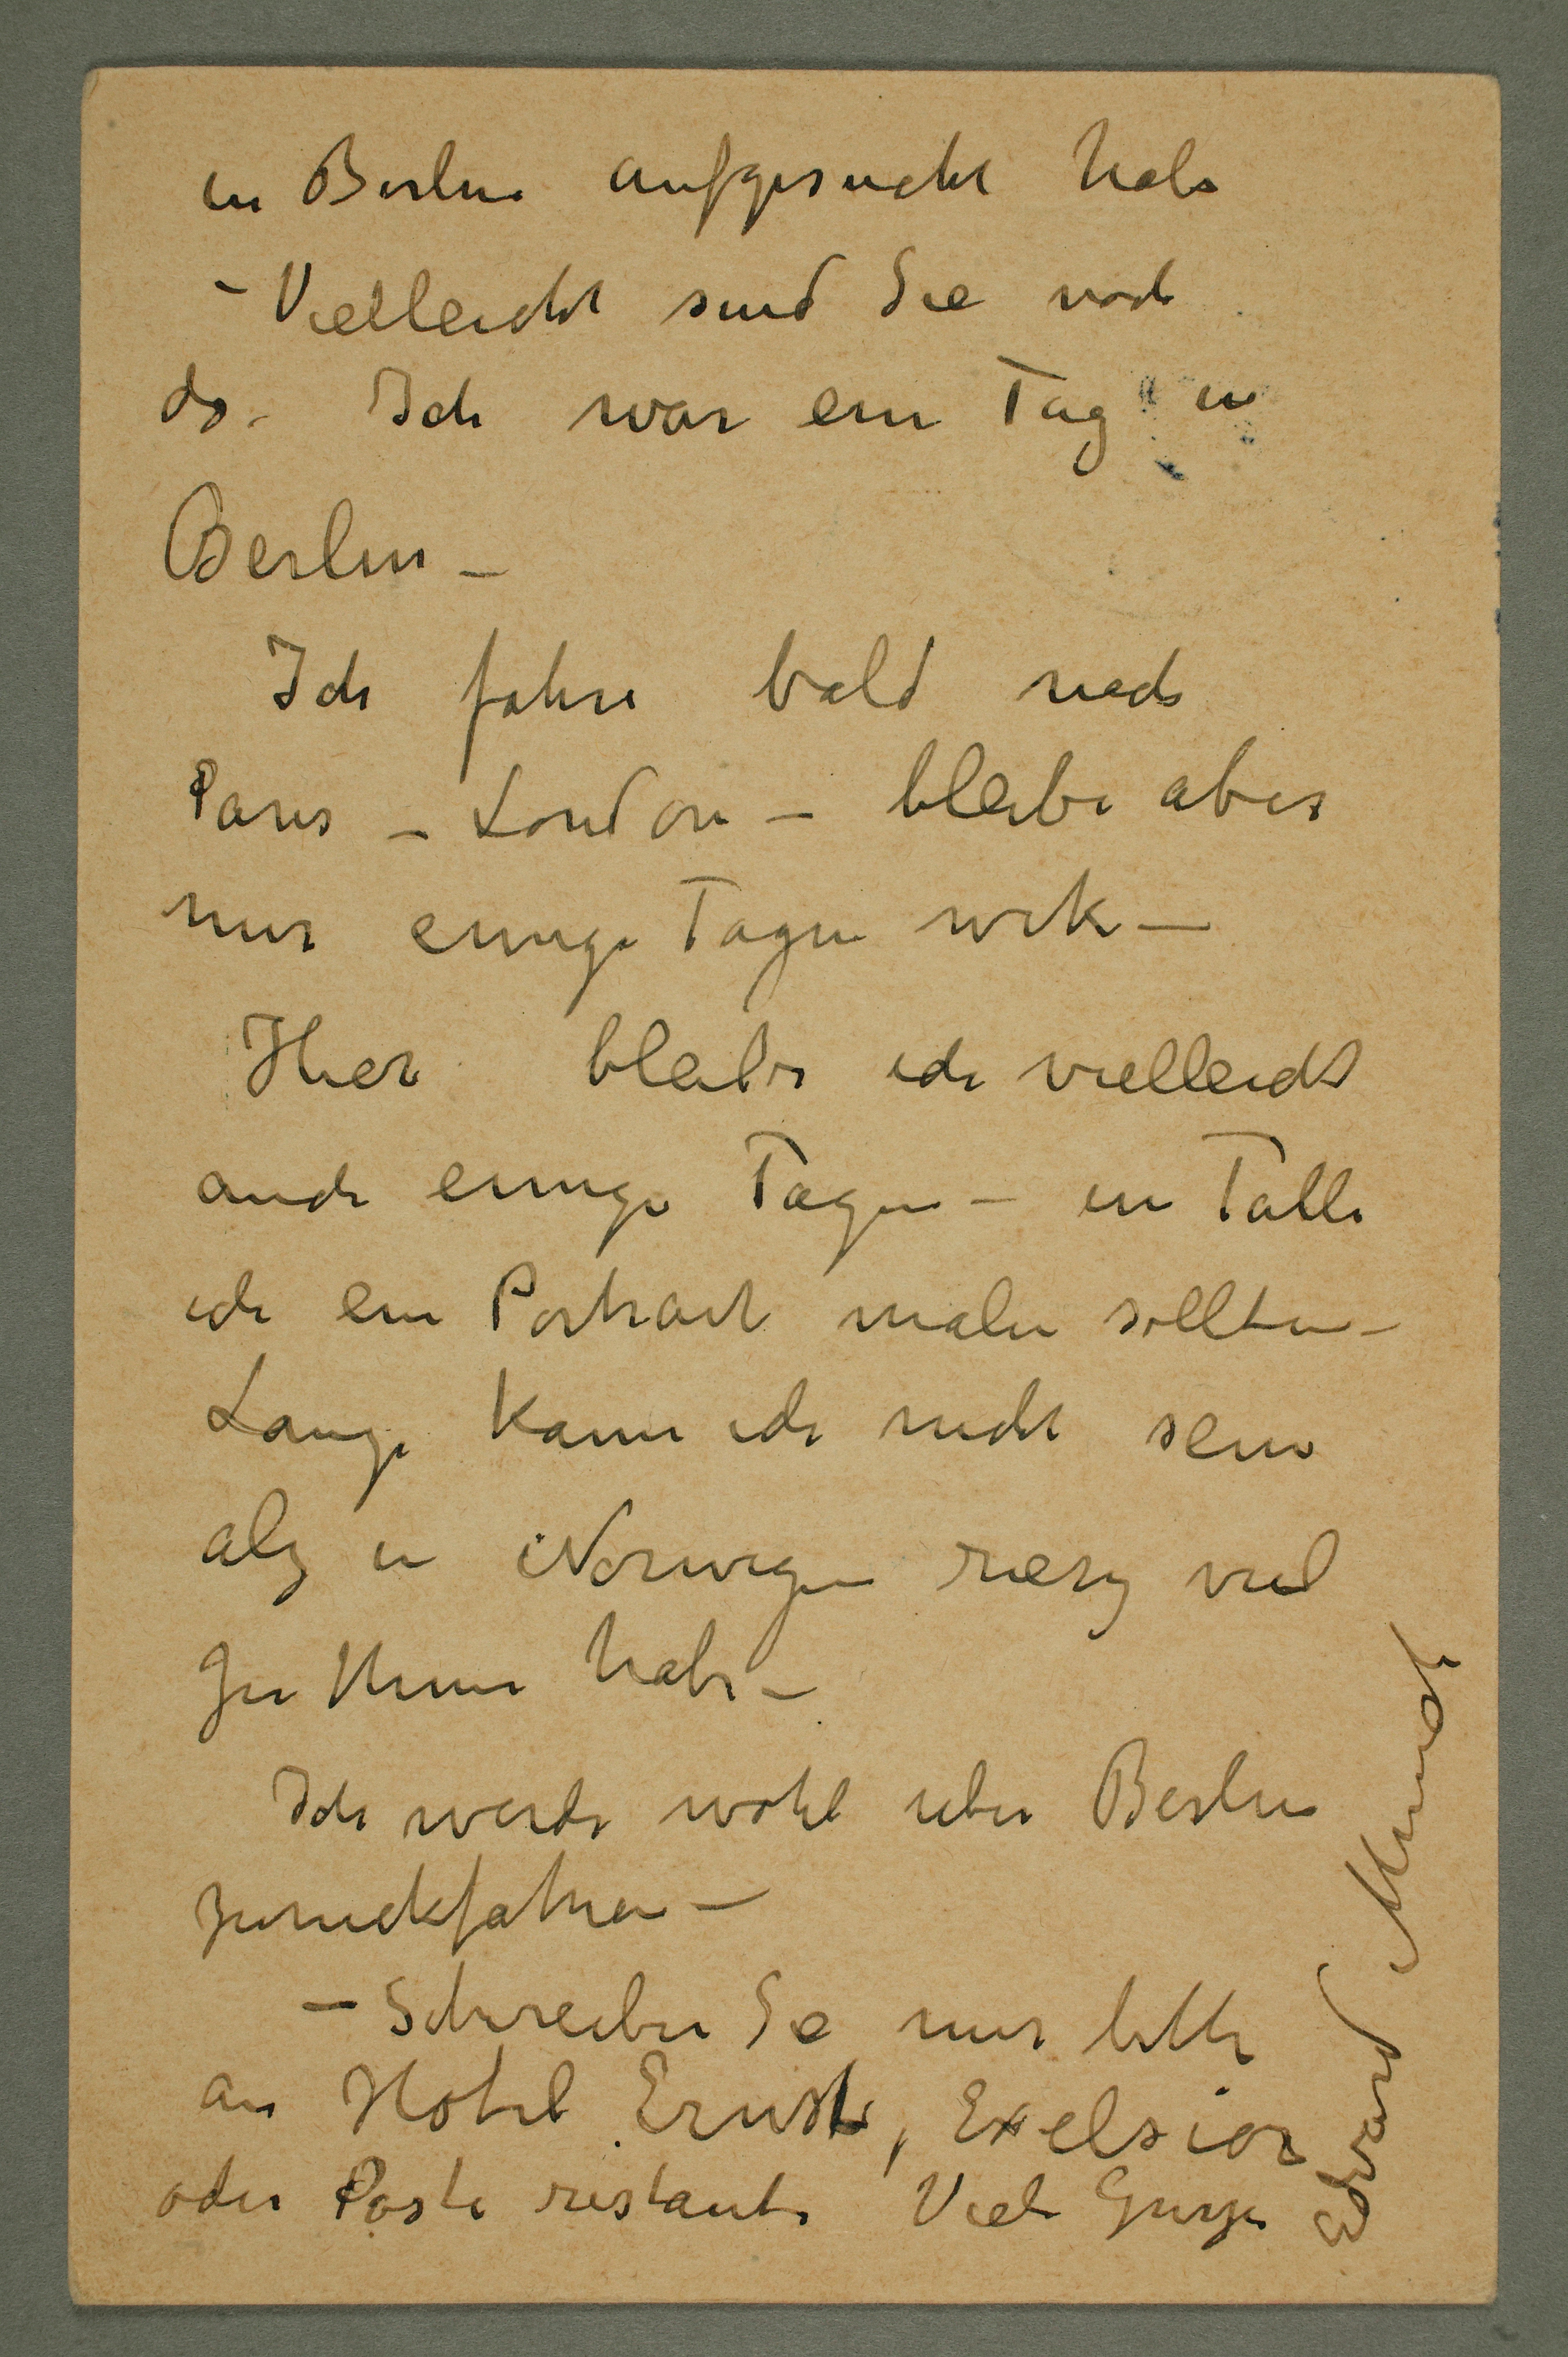 in Berlin aufgesucht habe
– Vielleicht sind Sie noch
da. Ich war ein Tag in
Berlin –
Ich fahre bald nach
Paris – London – bleibe aber
nur einige Tagen
Hier bleibe ich vielleicht
auch einige Tagen – in Falle
ich ein Portrait malen sollten –
Lange kann ich nicht sein
als in Norwegen riesig viel
zu thun habe –
Ich werde wohl uber Berlin
zuruckfahren –
– Schreiben Sie mir bitte
an Hotel Ernst, Exelsior
oder Poste restante Viele Gruße
Edvard Munch